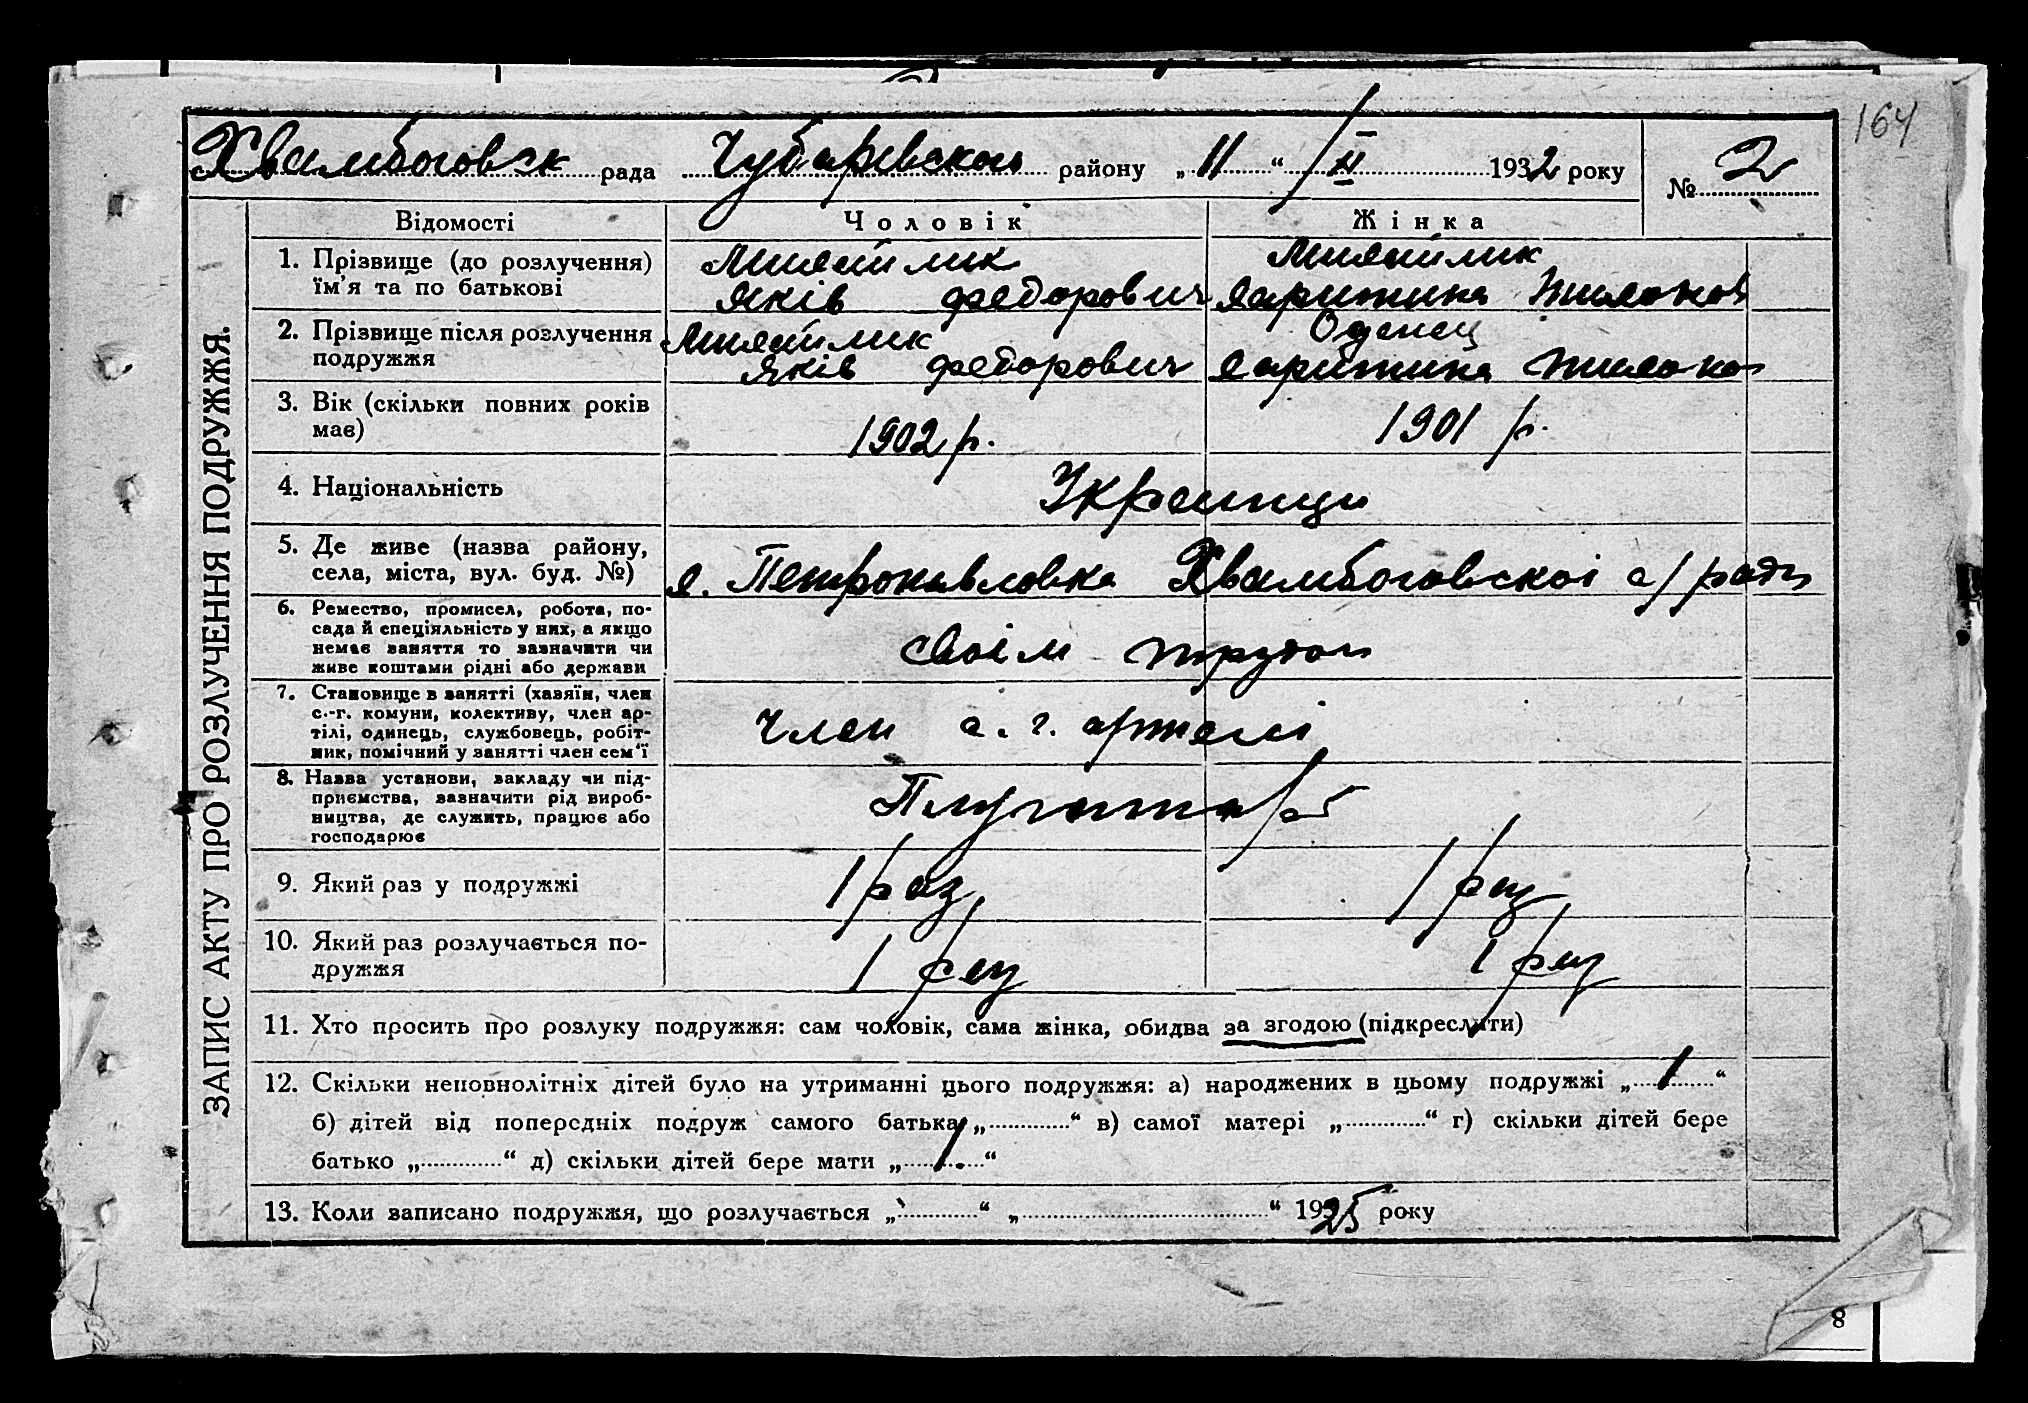 164
рада Чубаревского району „ 11 “ /II 1932 року № 2
ЗАПИС АКТУ ПРО РОЗЛУЧЕННЯ ПОДРУЖЖЯ.
Відомості Чоловік Жінка
1. Прізвище (до розлучення)
їм'я та по батькові Яків Федорович
2. Прізвище після розлучення Оденец
подружжя Яків Федорович
3. Вік (скільки повних років
має) 1902 р. 1901 р.
4. Національність Українци
5. Де живе (назва району,
села, міста, вул. буд. №) с. Петропавловка с/ради
6. Ремество, промисел, робота, по-
сада й спеціяльність у них, а якщо
немає заняття то зазначити чи своїм трудом
живе коштами рідні або держави
7. Становище в занятті (хазяїн, член
с.-г. комуни, колективу, член ар- член с. г. артелі
тілі, одинець, службовець, робіт-
ник, помічний у занятті член сем'ї
8. Назва установи, закладу чи під-
приємства, зазначити рід вироб- Плугатар
ництва, де служить, працює або
господарює
9. Який раз у подружжі 1 раз 1 раз
10. Який раз розлучається по- 1 раз 1 раз
дружжя
11. Хто просить про розлуку подружжя: сам чоловік, сама жінка, обидва за згодою (підкреслити)
12. Скільки неповнолітніх дітей було на утриманні цього подружжя: а) народжених в цьому подружжі „ 1 “
б) дітей від попередніх подруж самого батька „ “ в) самої матері „ “ г) скільки дітей бере
батько „ “ д) скільки дітей бере мати „ 1. “
13. Коли записано подружжя, що розлучається „ “ „ “ 1925 року
8